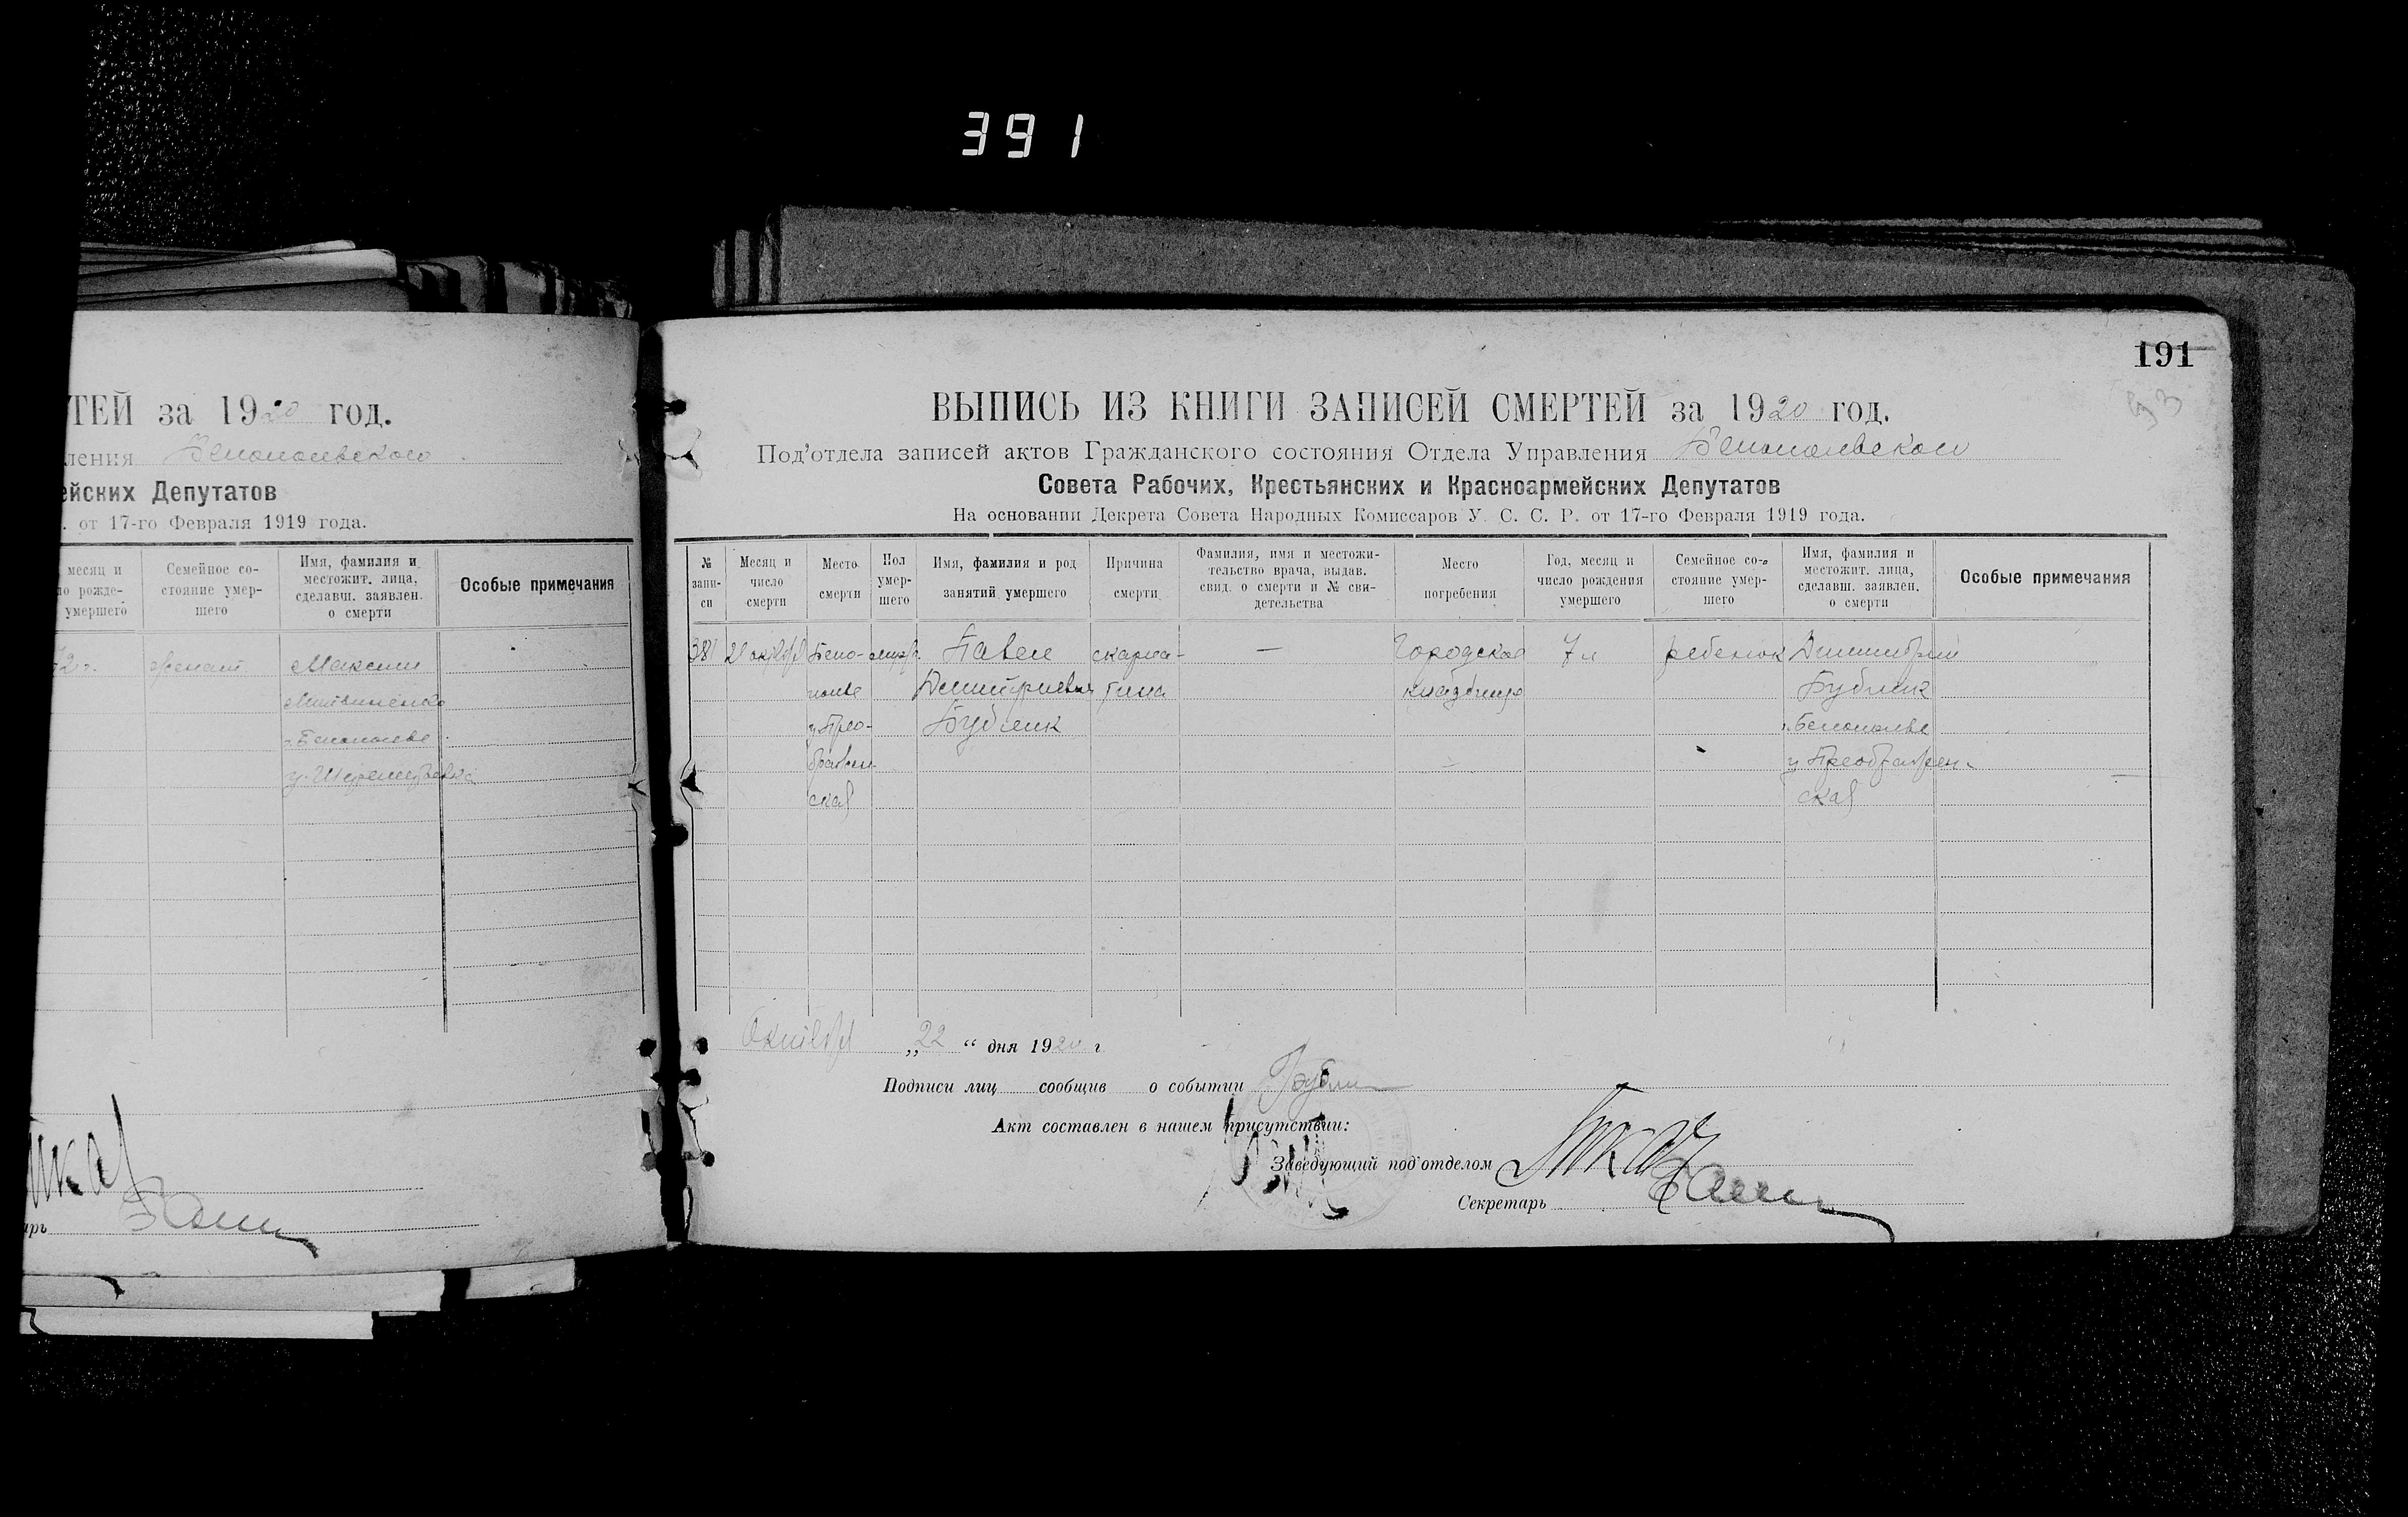 391
ТЕЙ за 1920 год.
ления Белопольского
ейских Депутатов
. от 17-го Февраля 1919 года.
месяц и
ло рожде-
умершего
Семейное со-
стояние умер-
шего
Имя, фамилия и
местожит. лица,
сделавш. заявлен.
о смерти
Особые примечания
72 г.
женат
Максим
Литвиненко
г. Белополье
арь
191
93
ВЫПИСЬ ИЗ КНИГИ ЗАПИСЕЙ СМЕРТЕЙ за 1920 год.
Под'отдела записей актов Гражданского состояния Отдела Управления Белопольского
Совета Рабочих, Крестьянских и Красноармейских Депутатов
На основании Декрета Совета Народных Комиссаров У. С. С. Р. от 17-го Февраля 1919 года.
№
запи-
си
Месяц и
число
смерти
Место
смерти
Пол
умер-
шего
Имя, фамилия и род
занятий умершего
Причина
смерти
Фамилия, имя и местожи-
тельство врача, выдав.
свид. о смерти и № сви-
детельства
Место
погребения
Год, месяц и
число рождения
умершего
Семейное со-
стояние умер-
шего
Имя, фамилия и
местожит. лица,
сделавш. заявлен.
о смерти
Особые примечания
октября
Бело-
полье
у Прео-
бражен-
ская
Павел
Дмитриевич
Бублик
скарла-
тина
—
Городское
кладбище
7 л
ребенок
Дмитрий
Бублик
г. Белополье
у Преображен-
ская
Октября „22“ дня 1920 г
Подписи лиц сообщив о событии Бублик
Акт составлен в нашем присутствии:
Заведующий под'отделом
Секретарь